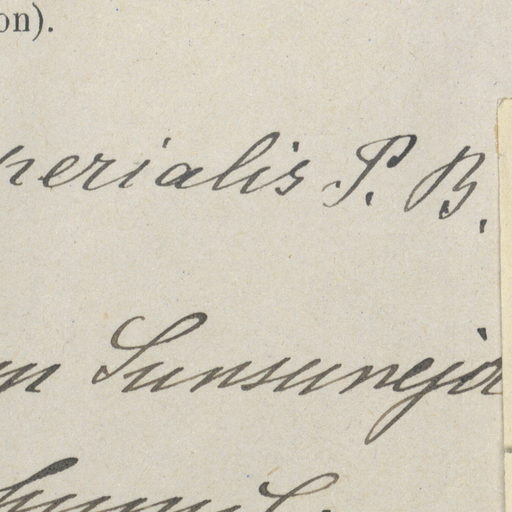 on).
perialis P. B.
m Sunsunejo